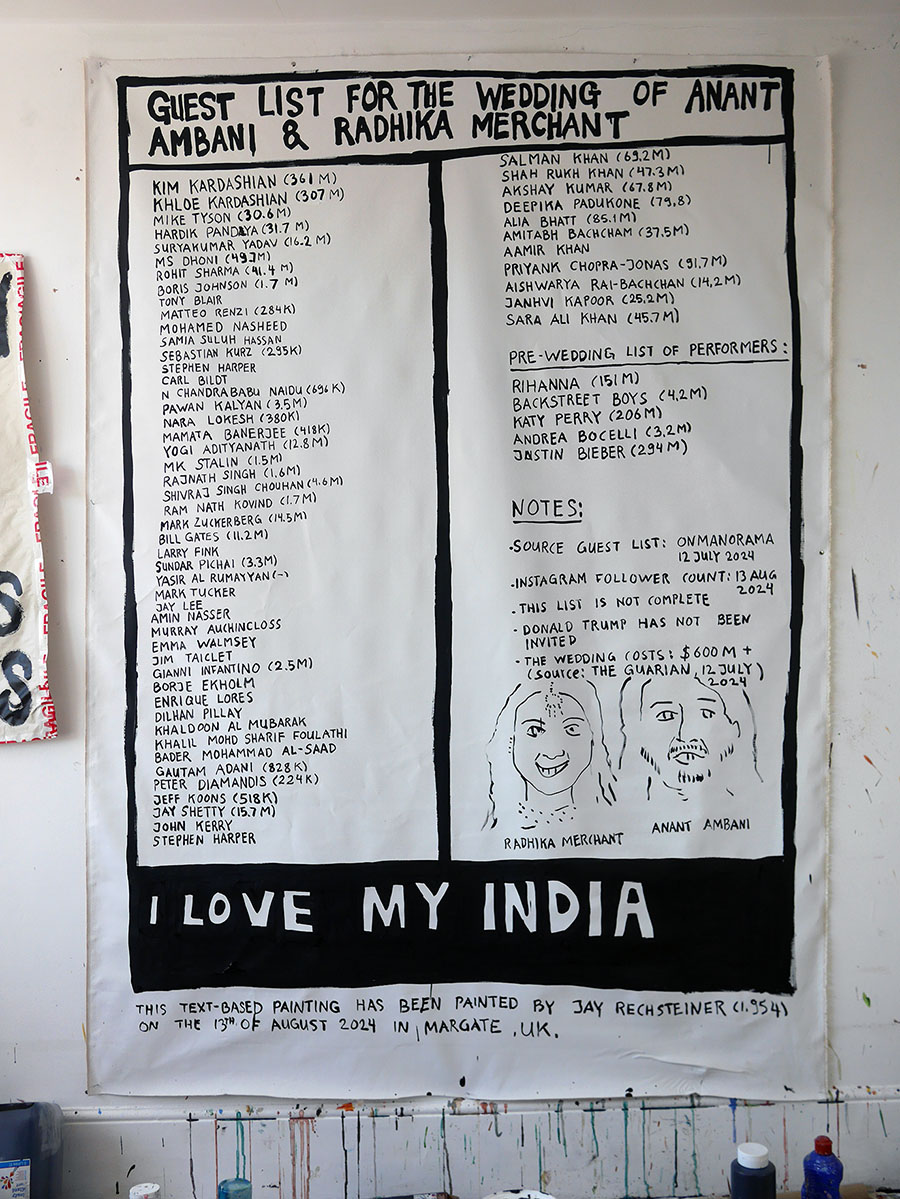 GUEST LIST FOR THE WEDDING OF ANANT
AMBANI & RADHIKA MERCHANT
KIM KARDASHIAN (361 M)
KHLOE KARDASHIAN (307 M)
MIKE TYSON (30.6 M)
HARDIK PANDAYA (31.7 M)
SURYAKUMAR YADAV (16.2 M)
MS DHONI (49.7M)
ROHIT SHARMA (41.4 M)
BORIS JOHNSON (1.7 M)
TONY BLAIR
MATTEO RENZI (284K)
MOHAMED NASHEED
SAMIA SULUH HASSAN
SEBASTIAN KURZ (295K)
STEPHEN HARPER
CARL BILDT
N CHANDRABABU NAIDU (696 K)
PAWAN KALYAN (3.5M)
NARA LOKESH (380K)
MAMATA BANERJEE (418K)
YOGI ADITYANATH (12.8 M)
MK STALIN (1.5M)
RAJNATH SINGH (1.6M)
SHIVRAJ SINGH CHOUHAN (4.6M)
RAM NATH KOVIND (1.7 M)
MARK ZUCKERBERG (14.5M)
BILL GATES (11.2M)
LARRY FINK
SUNDAR PICHAI (3.3M)
YASIR AL RUMAYYAN (-)
MARK TUCKER
JAY LEE
AMIN NASSER
MURRAY AUCHINCLOSS
EMMA WALMSEY
JIM TAICLET
GIANNI INFANTINO (2.5M)
BORJE EKHOLM
ENRIQUE LORES
DILHAN PILLAY
KHALDOON AL MUBARAK
KHALIL MOHD SHARIF FOULATHI
BADER MOHAMMAD AL-SAAD
GAUTAM ADANI (828K)
PETER DIAMANDIS (224K)
JEFF KOONS (518K)
JAY SHETTY (15.7M)
JOHN KERRY
STEPHEN HARPER
SALMAN KHAN (69,2M)
SHAH RUKH KHAN (47.3M)
AKSHAY KUMAR (67.8M)
DEEPIKA PADUKONE (79,8)
ALIA BHATT (85.1M)
AMITABH BACHCHAM (37.5M)
AAMIR KHAN
PRIYANK CHOPRA-JONAS (91,7M)
AISHWARYA RAI-BACHCHAN (14,2M)
JANHVI KAPOOR (25,2M)
SARA ALI KHAN (45.7M)
PRE-WEDDING LIST OF PERFORMERS:
RIHANNA (151 M)
BACKSTREET BOYS (4,2M)
KATY PERRY (206M)
ANDREA BOCELLI (3,2M)
JUSTIN BIEBER (294M)
NOTES:
·SOURCE GUEST LIST: ONMANORAMA
12 JULY 2024
·INSTAGRAM FOLLOWER COUNT: 13 AUG
2024
· THIS LIST IS NOT COMPLETE
· DONALD TRUMP HAS NOT BEEN
INVITED
· THE WEDDING COSTS: $600M +
(SOURCE: THE GUARIAN, 12 JULY)
2024
RADHIKA MERCHANT
ANANT AMBANI
I LOVE MY INDIA
THIS TEXT-BASED PAINTING HAS BEEN PAINTED BY JAY RECHSTEINER (1.954)
ON THE 13TH OF AUGUST 2024 IN MARGATE, UK.
FRAGILE